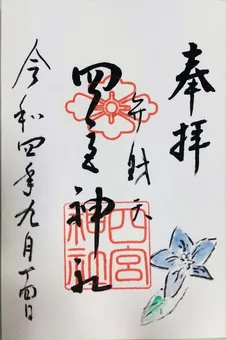 奉拝
弁財天
四宮神社
四宮
神社
令和四年九月